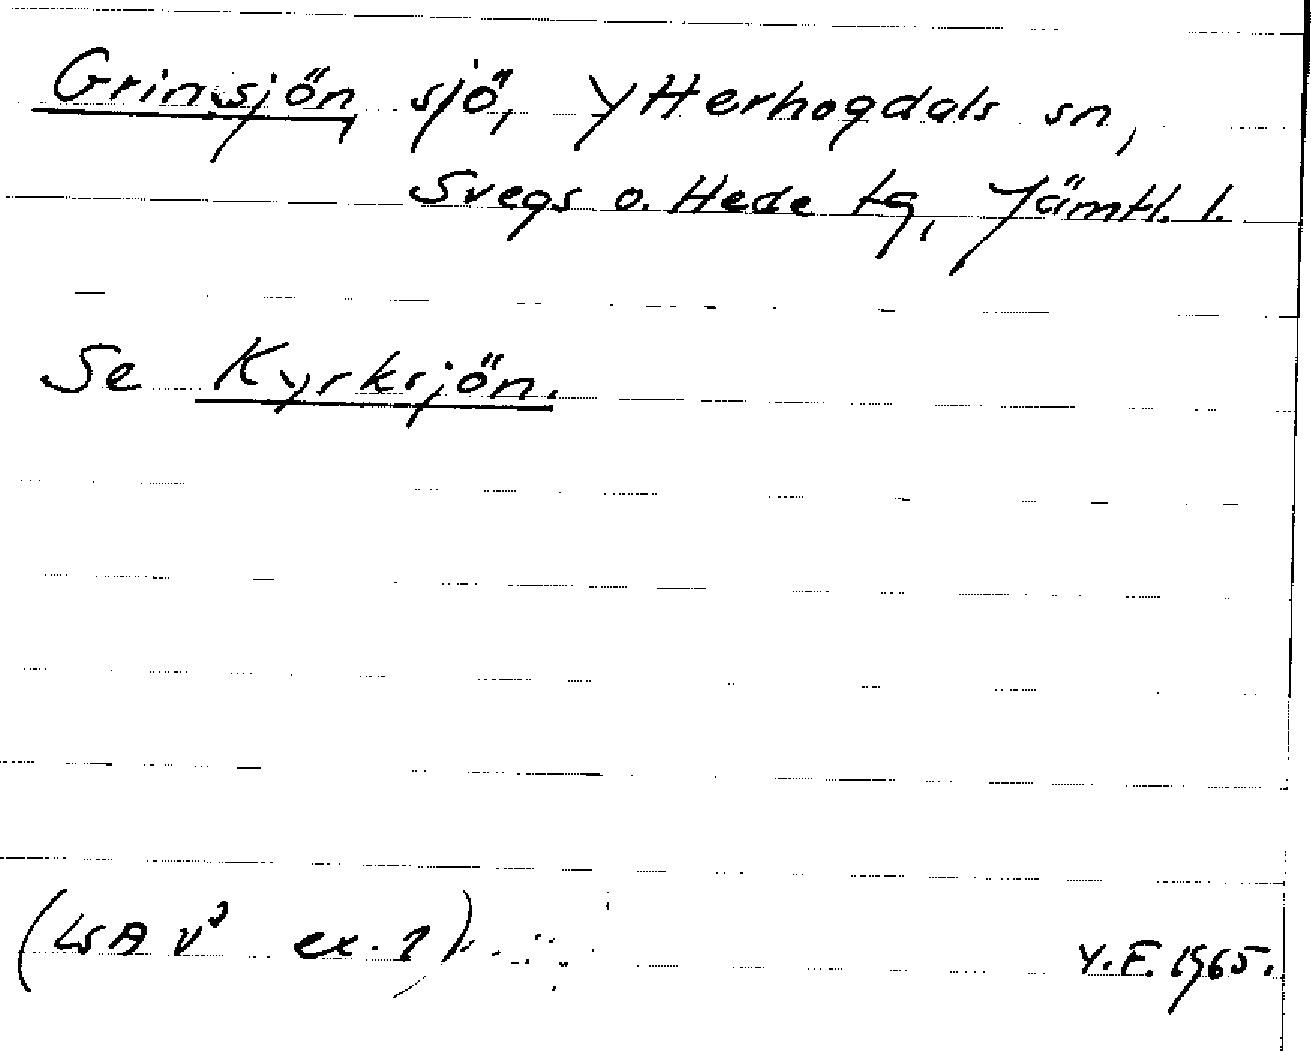 Grinsjön, sjö, Ytterhogdals sn,
Svegs o. Hede tg, Jämtl. l.
Se Kyrksjön.
(LSA v² ex. 1)
Y.F. 1965.